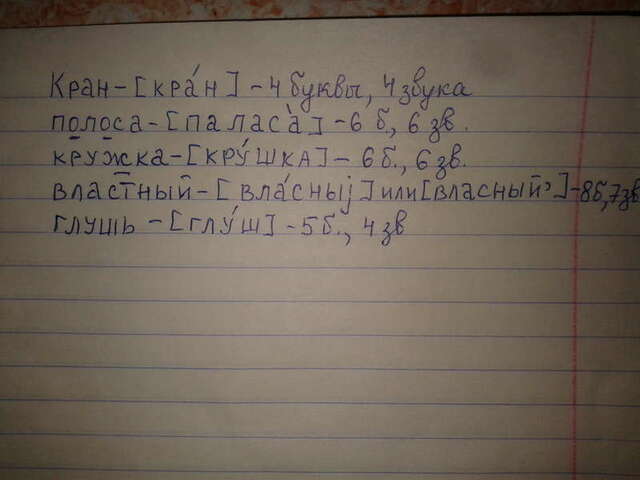 Кран - [кра́н] - 4 буквы, 4 звука
полоса - [паласа́] - 6 б, 6 зв.
кружка - [кру́шка] - 6 б., 6 зв.
властный - [вла́сныj] или [власный'] - 8б, 7зв
глушь - [глу́ш] - 5 б., 4 зв